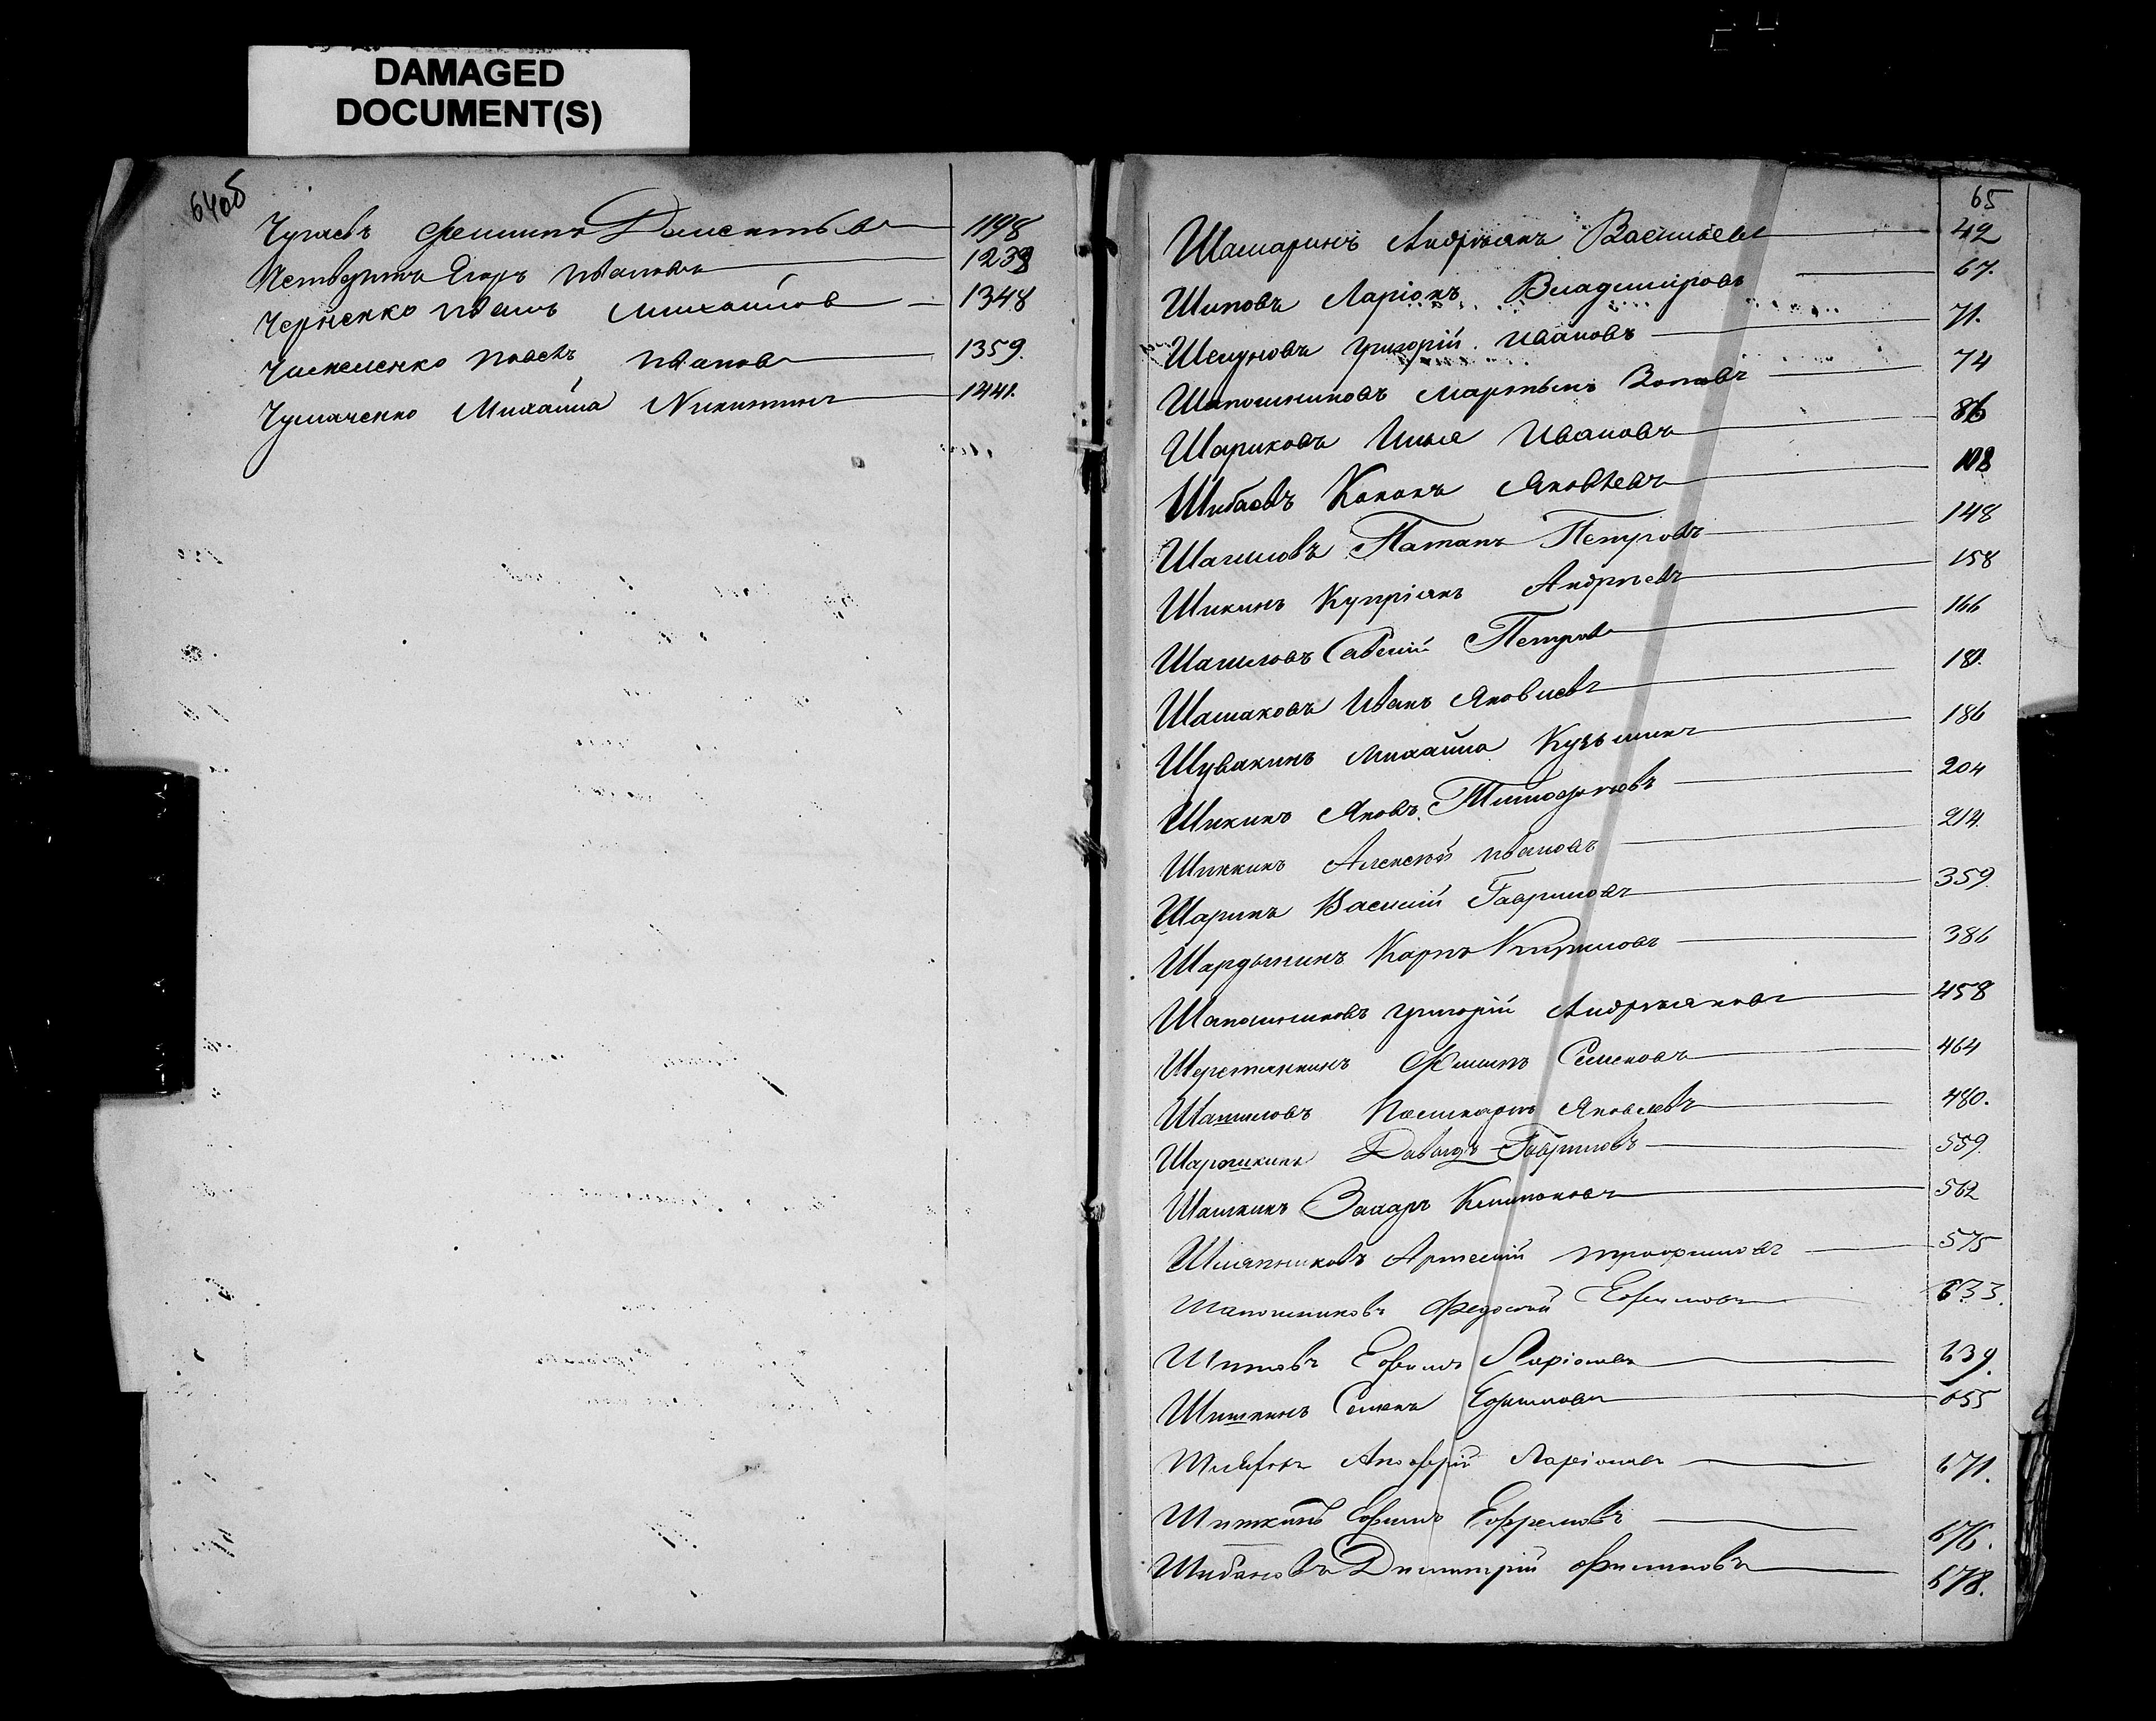 DAMAGED
DOCUMENT(S)
64об
Чугаевъ Филипъ 1198
Четвертъ Егоръ Ивановъ
Черненко Иванъ Михайлов 1348
Чижеленко Павелъ Иванов 1359.
Чумаченко Михайла Никитинъ 1441.
65
Шашаринъ Андрьянъ Васильевъ 42
Шиповъ Ларіонъ Владиміровъ 67.
Шелуновъ Григорій Ивановъ 71.
Шапошниковъ Мартынъ Зотовъ 74
Шариковъ Илья Ивановъ 86
Шибаевъ Кононъ Яковлевъ 108
Шашловъ Патапъ Петровъ 148
Шикинъ Купріянъ Андреевъ 158
Шашловъ Савелій Петровъ 166
Шашаковъ Иванъ Яковлевъ 181.
Шувакинъ Михайла Кузьминъ 186
Шикинъ Яковъ Тимофеевъ 204
Шиккинъ Алексей Ивановъ 214.
Шаринъ Василій Гавриловъ 359.
Шардынинъ Карпъ Кириловъ 386
Шапошниковъ Григорій Андрьяновъ 458
Шерстянкинъ Филипъ Семеновъ 464
Шашиловъ Поликарпъ Яковлевъ 480.
Шарошкинъ Давыдъ Гавриловъ 559.
Шашкинъ Захаръ 562
Шляпниковъ Артемій Трофимовъ 575
Шапошниковъ Федосей Ефимовъ 633.
Шиповъ Ефимъ Ларіоновъ 639.
Шишкинъ Семенъ Ефимовъ 655
Ларіоновъ 671.
Шиткинъ Ефимъ Ефремовъ 676.
Шибановъ Димитрій Филиповъ 678.